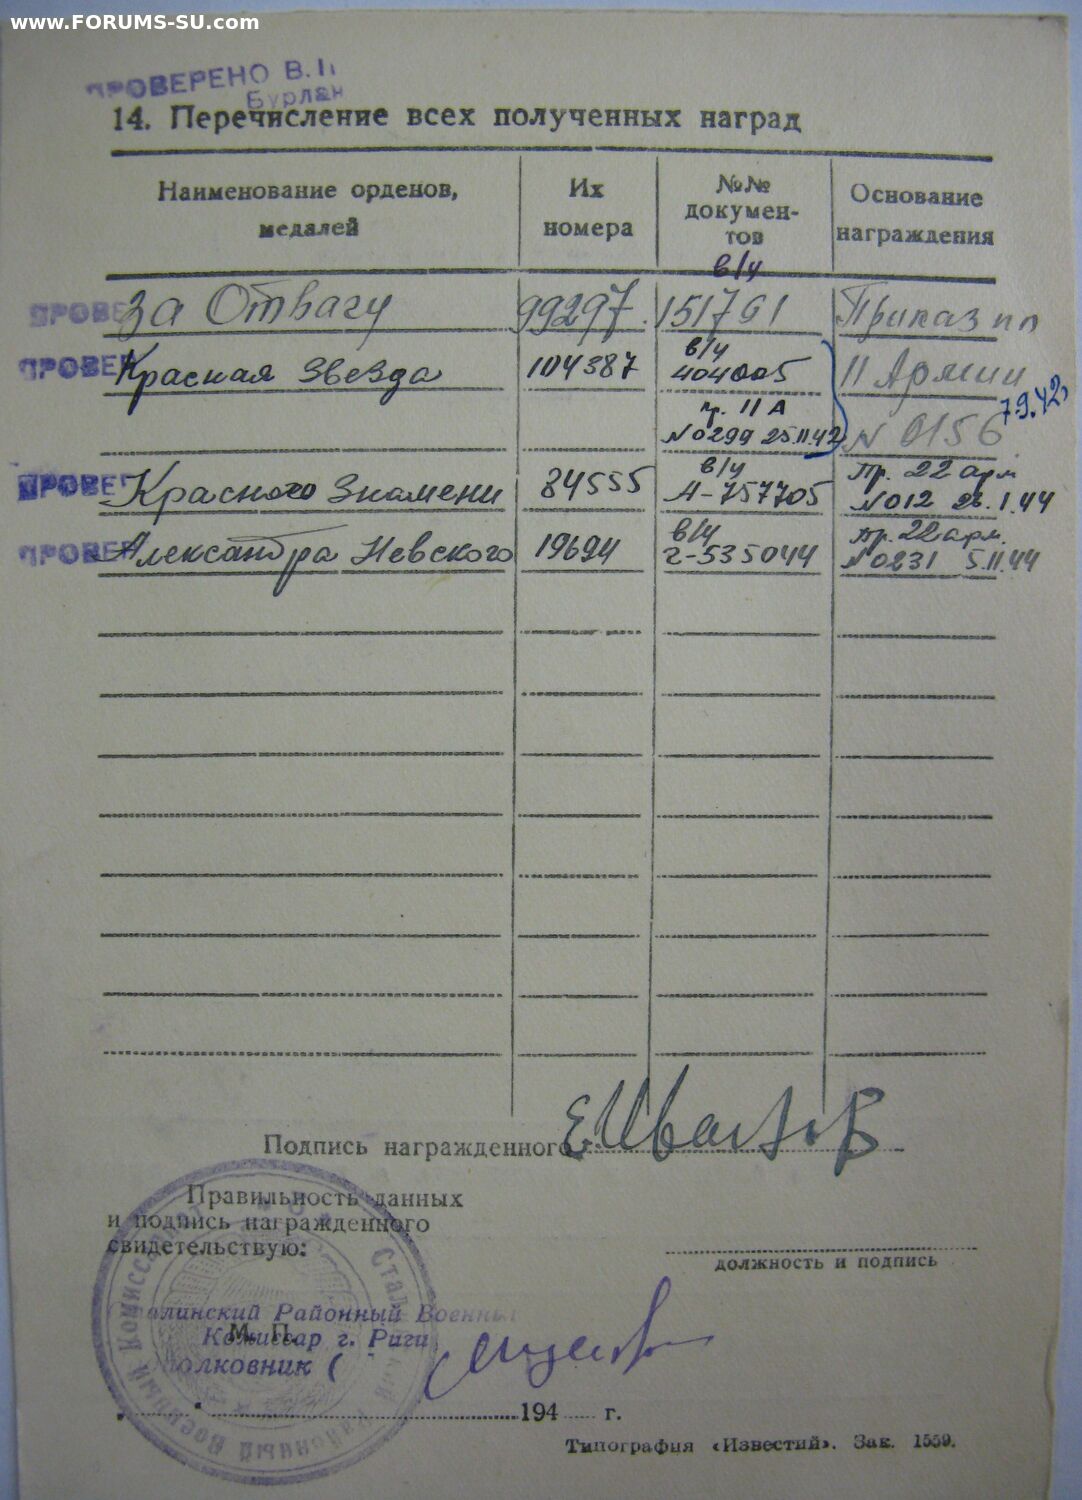 www.FORUMS-SU.com
ПРОВЕРЕНО В.
Бурлан
14. Перечисление всех полученных наград
Наименование орденов, медалей
Их номера
№№ документов
в/у
Основание награждения
ПРОВЕ За Отвагу 99297 151761 Приказ пп
ПРОВЕР Красная Звезда 104387 в/у 404005 11 Армии
пр. 11 А №0299 25.11.42 N 0156 7.9.42
ПРОВЕР Красного Знамени 84555 в/у А-757705 Пр. 22 арм №012 26.1.44
ПРОВЕР Александра Невского 19694 в/у г-535044 Пр. 22 арм. №0231 5.11.44
Подпись награжденного
Правильность данных
и подпись награжденного
свидетельствую:
должность и подпись
алинский Районный Военны
М. П.
Комиссар г. Риги
олковник (
194 г.
Типография «Известий». Зак. 1559.